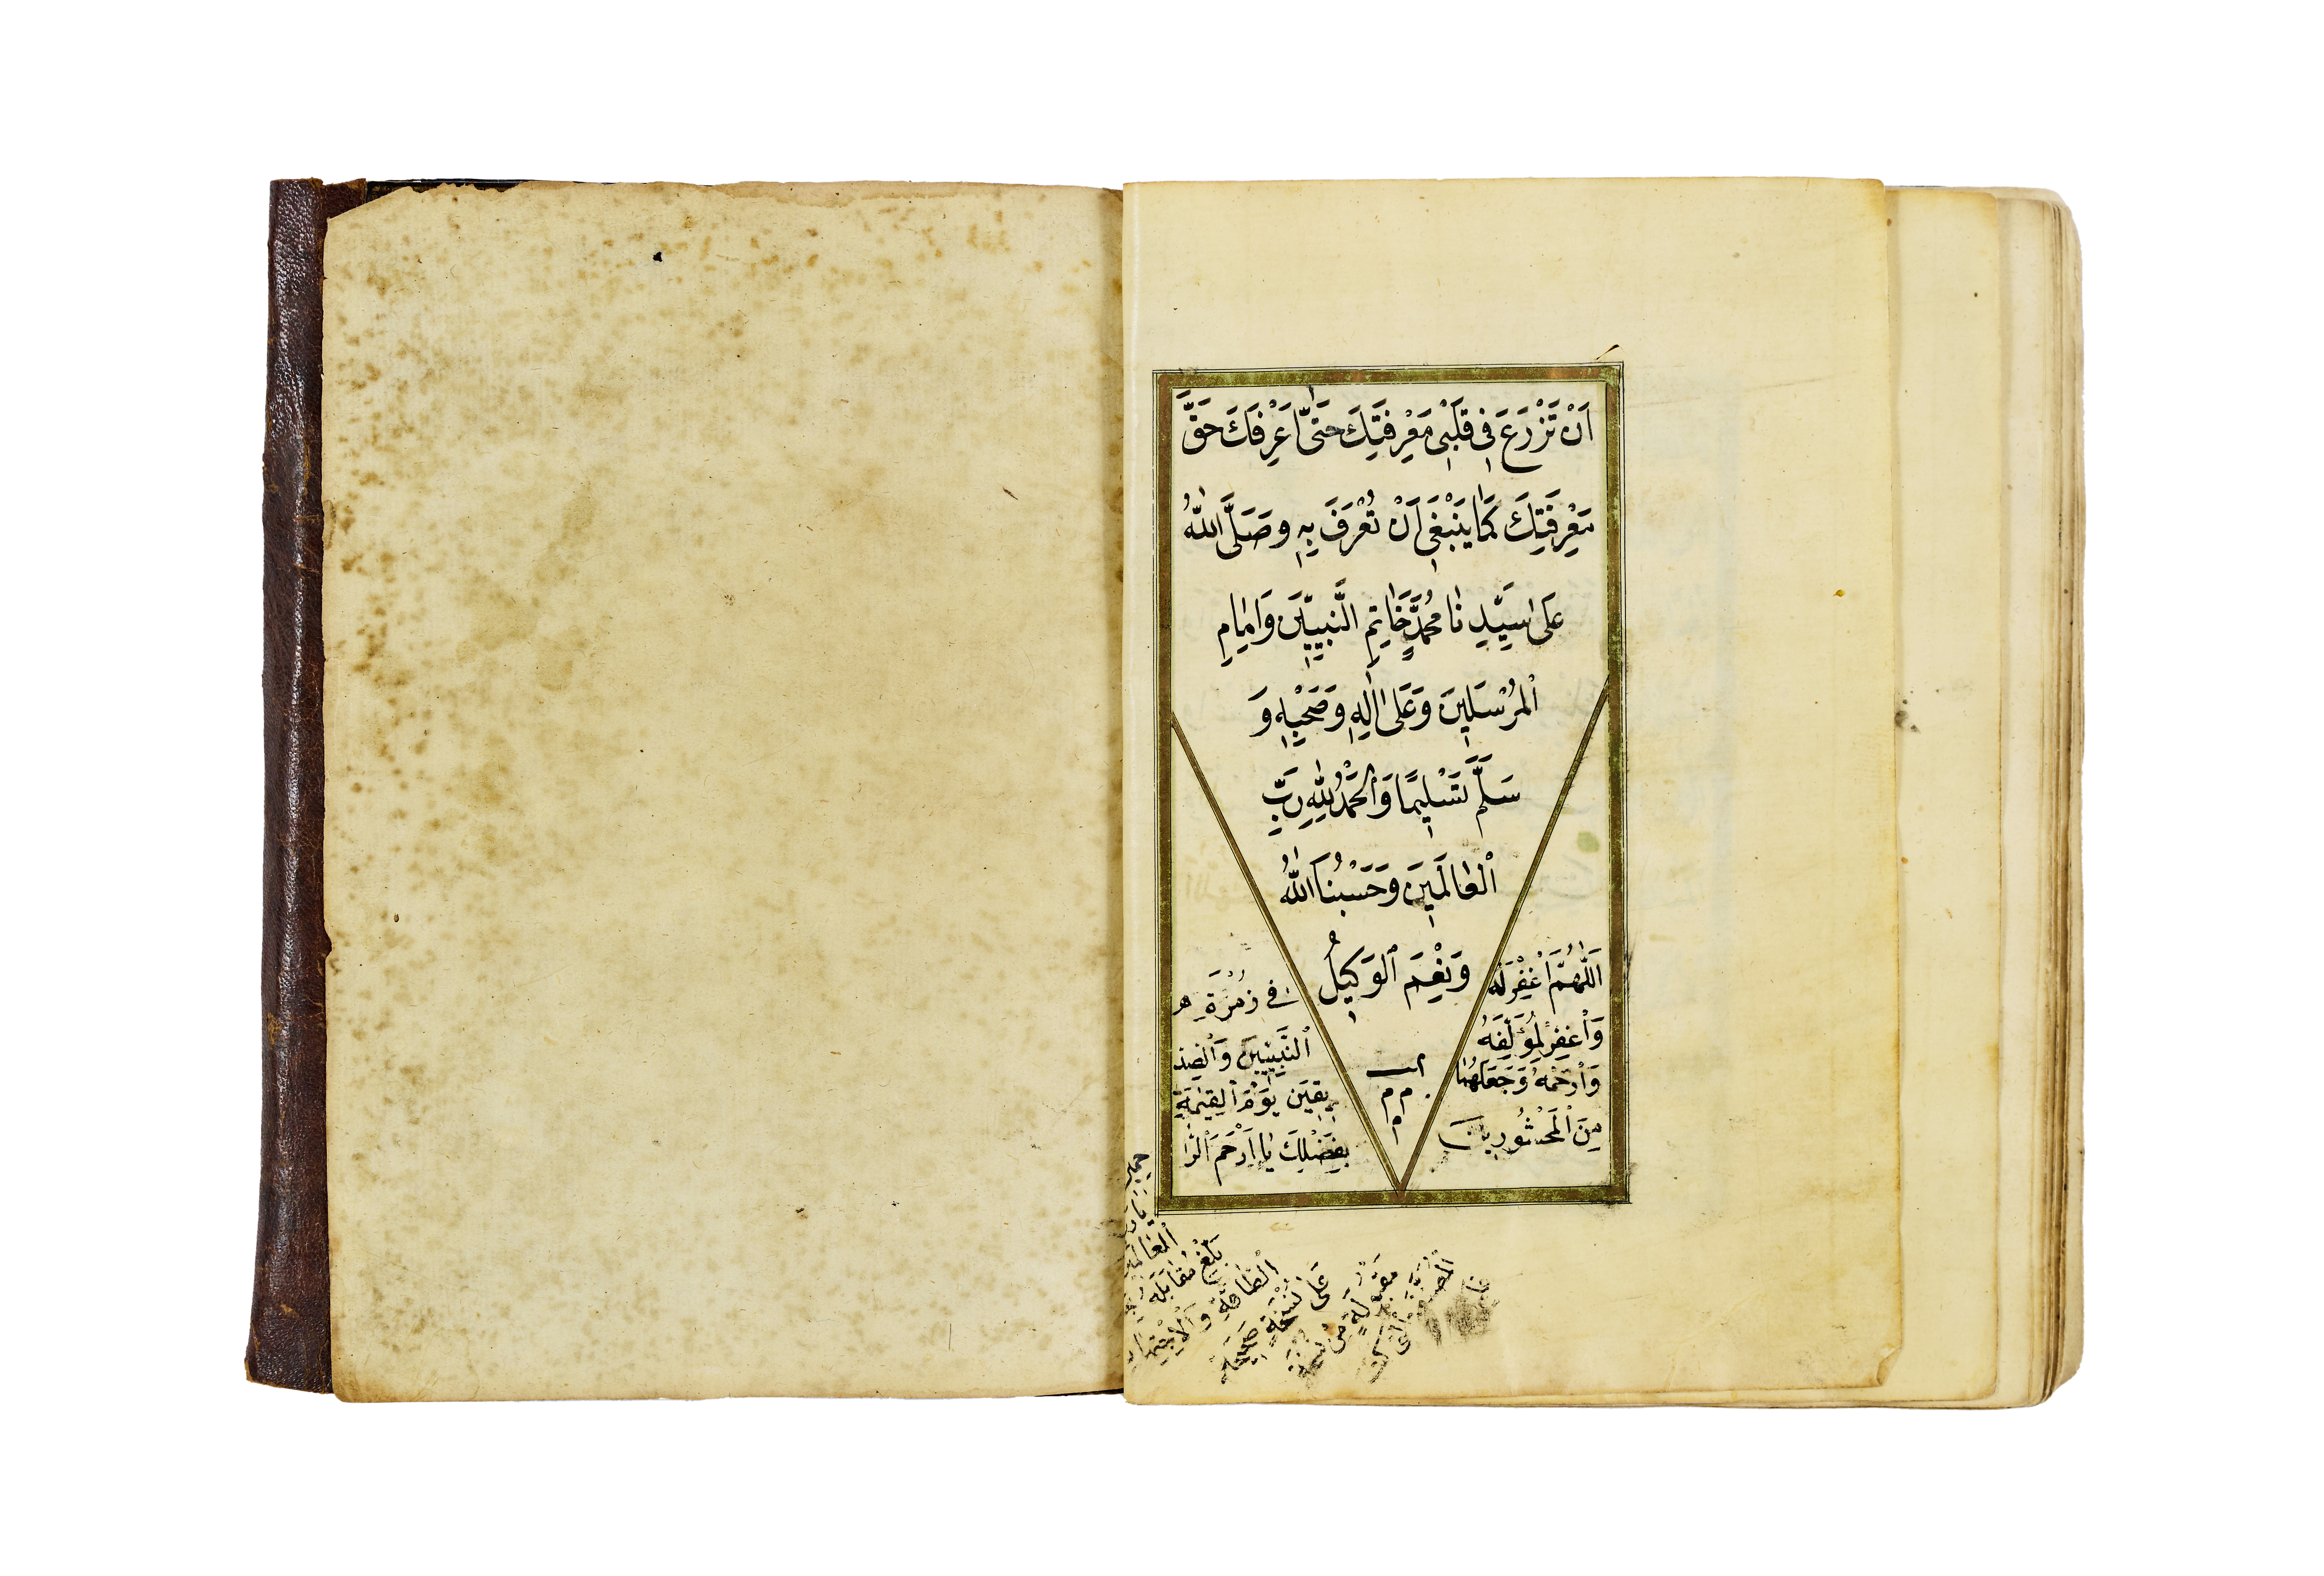 اَنْ تَزْرَعَ فِي قَلْبِي مَعْرِفَتَكَ حَتَّى اَعْرِفَكَ حَقَّ
مَعْرِفَتِكَ كَمَا يَنْبَغِي اَنْ تُعْرَفَ بِهِ وَصَلَّى اللّٰهُ
عَلٰى سَيِّدِنَا مُحَمَّدٍ خَاتِمِ النَّبِيّٖينَ وَاِمَامِ
الْمُرْسَلِينَ وَعَلٰى اٰلِهِ وَصَحْبِهِ وَ
سَلَّمَ تَسْلِيمًا وَالْحَمْدُ لِلّٰهِ رَبِّ
الْعَالَمِينَ وَحَسْبُنَا اللّٰهُ
وَنِعْمَ الْوَكِيلُ
اَللّٰهُمَّ اغْفِرْ لَهُ
وَاغْفِرْ لِمُؤَلِّفِهِ
وَارْحَمْهُ وَجَعَلْهُمَا
مِنَ الْمَحْشُورِينَ
فِي زُمْرَةِ
النَّبِيّٖينَ وَالصِّدّ
يقِينَ يَوْمَ الْقِيٰمَةِ
بِفَضْلِكَ يَا اَرْحَمَ الرَّا
حمين
الْعَالَمِينَ
بَلَغَ مُقَابَلَةً
الطَّاقَةِ وَالْاِجْتِهَادِ
عَلٰى نُسْخَةٍ صَحِيحَةٍ
مِنْ نُسْخَةِ